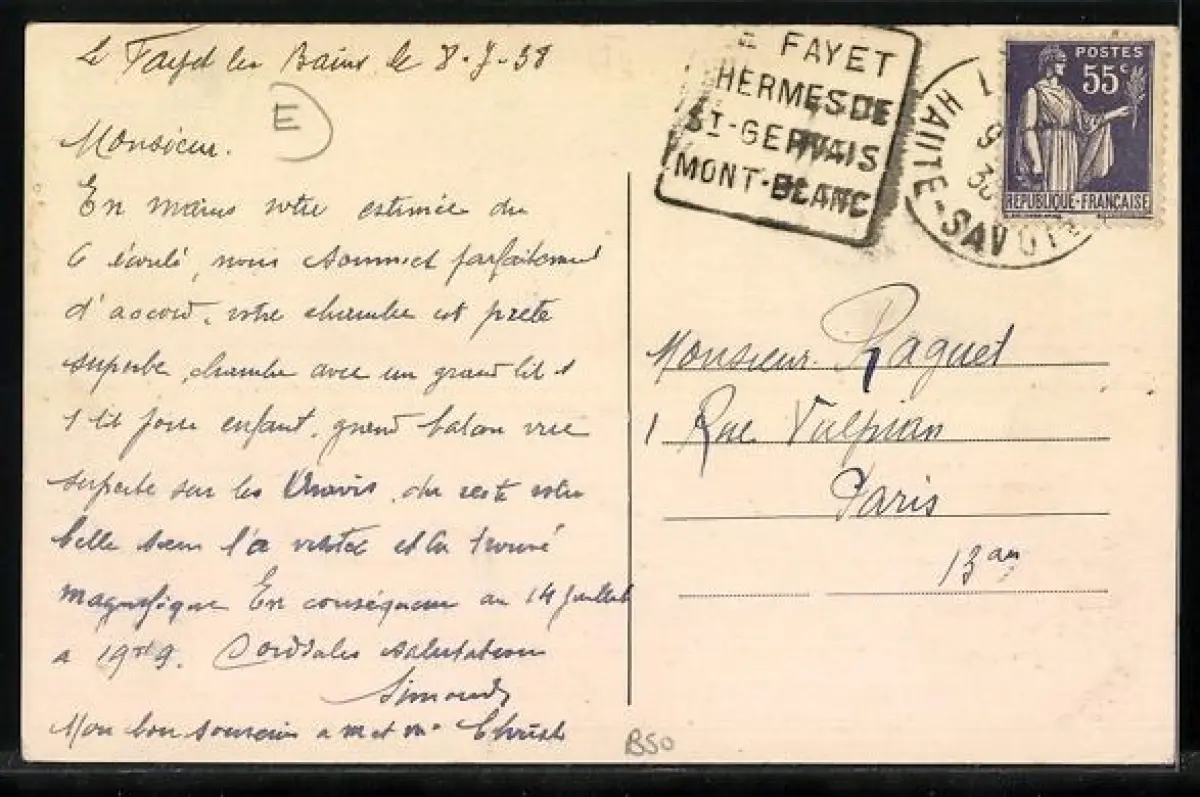 Le Fayet les Bains le 8-7-38
E
Monsieur.
En mains votre estimée du
6 écoulé, nous sommes parfaitement
d'accord, votre chambre est prete
superbe, chambre avec un grand lit &
1 lit pour enfant, grand balcon vue
superbe sur les Aravis, du reste votre
belle sœur l'a visitée et la trouvé
magnifique En conséquence au 14 Juillet
a 19 9. Cordiales salutations
Simond
Mon bon souvenir a m et me
FAYET
THERMES DE
ST-GERVAIS
MONT-BLANC
HAUTE-SAVOIE
POSTES
55c
REPUBLIQUE-FRANÇAISE
Monsieur Raguet
1 Rue Vulpian
Paris
13 arr
B50